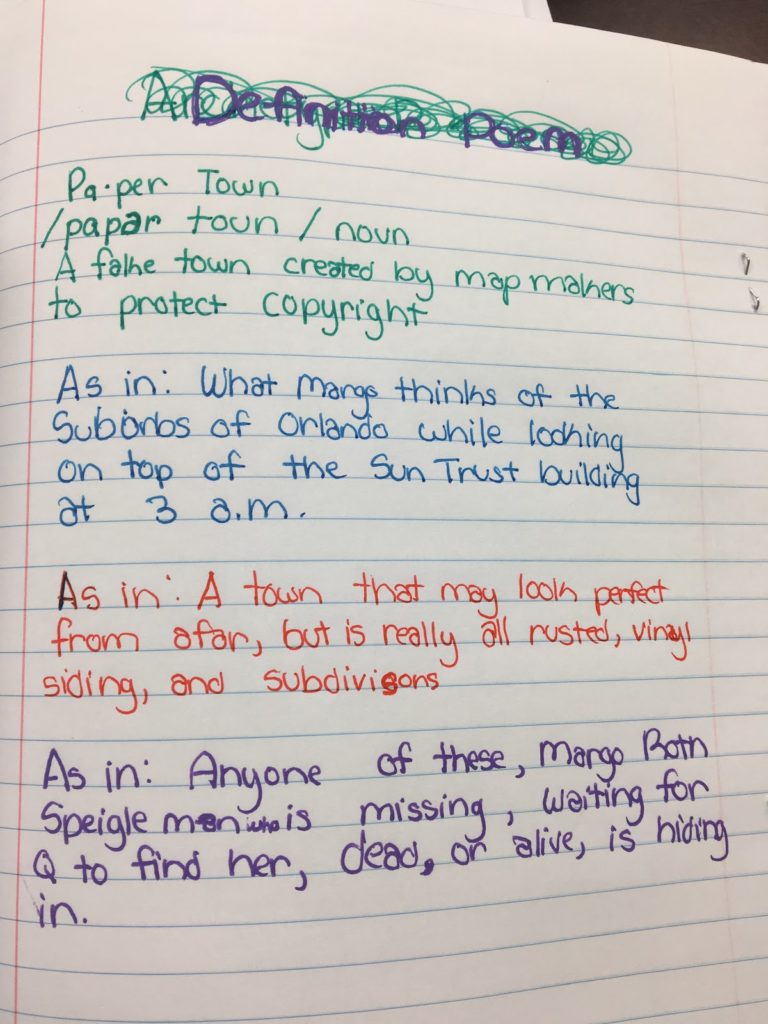 A Definition Poem
Pa·per Town
/papər toun / noun
A fake town created by map makers
to protect copyright
As in: What Margo thinks of the
Suborbs of Orlando while looking
on top of the Sun Trust building
at 3 a.m.
As in: A town that may look perfect
from afar, but is really all rusted, vinyl
siding, and subdivisons
As in: Anyone of these, Margo Roth
Speigle man who is missing, waiting for
Q to find her, dead, or alive, is hiding
in.